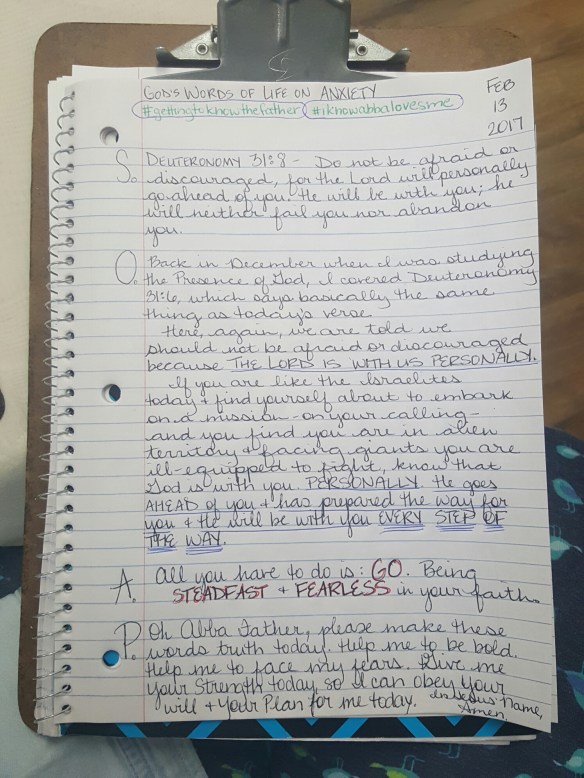 GOD'S WORDS OF LIFE ON ANXIETY
#gettingtoknowthefather #iknowabbalovesme
FEB
13
2017
S. DEUTERONOMY 31:8 - Do not be afraid or
discouraged, for the Lord will personally
go ahead of you. He will be with you; he
will neither fail you nor abandon
you.
O. Back in December when I was studying
the Presence of God, I covered Deuteronomy
31:6, which says basically the same
thing as today's verse.
Here, again, we are told we
should not be afraid or discouraged
because THE LORD IS WITH US PERSONALLY.
If you are like the Israelites
today & find yourself about to embark
on a mission - on your calling -
and you find you are in alien
territory & facing giants you are
ill-equipped to fight, know that
God is with you PERSONALLY. He goes
AHEAD of you & has prepared the way for
you & He will be with you EVERY STEP OF
THE WAY.
A. All you have to do is: GO. Being
STEADFAST & FEARLESS in your faith.
P. Oh Abba Father, please make these
words truth today. Help me to be bold.
Help me to face my fears. Give me
your Strength today, so I can obey your
will & your Plan for me today. In Jesus' name,
Amen.